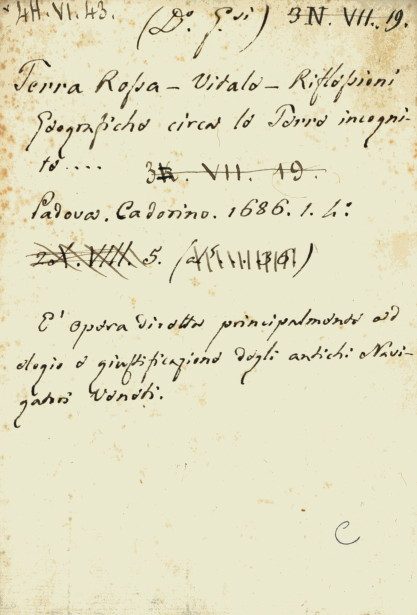 4H. VI. 43. (Do. G.si) 3N. VII. 19.
Terra Rossa – Vitale – Riflessioni
Geografiche circa le Terre incogni-
te .... 3N. VII. 19.
Padova. Cadorino. 1686. 1. 4.o
2N. VIII. 5.
E' opera diretta principalmente ad
elogio e giustificazione degli antichi Navi-
gatori Veneti.
C